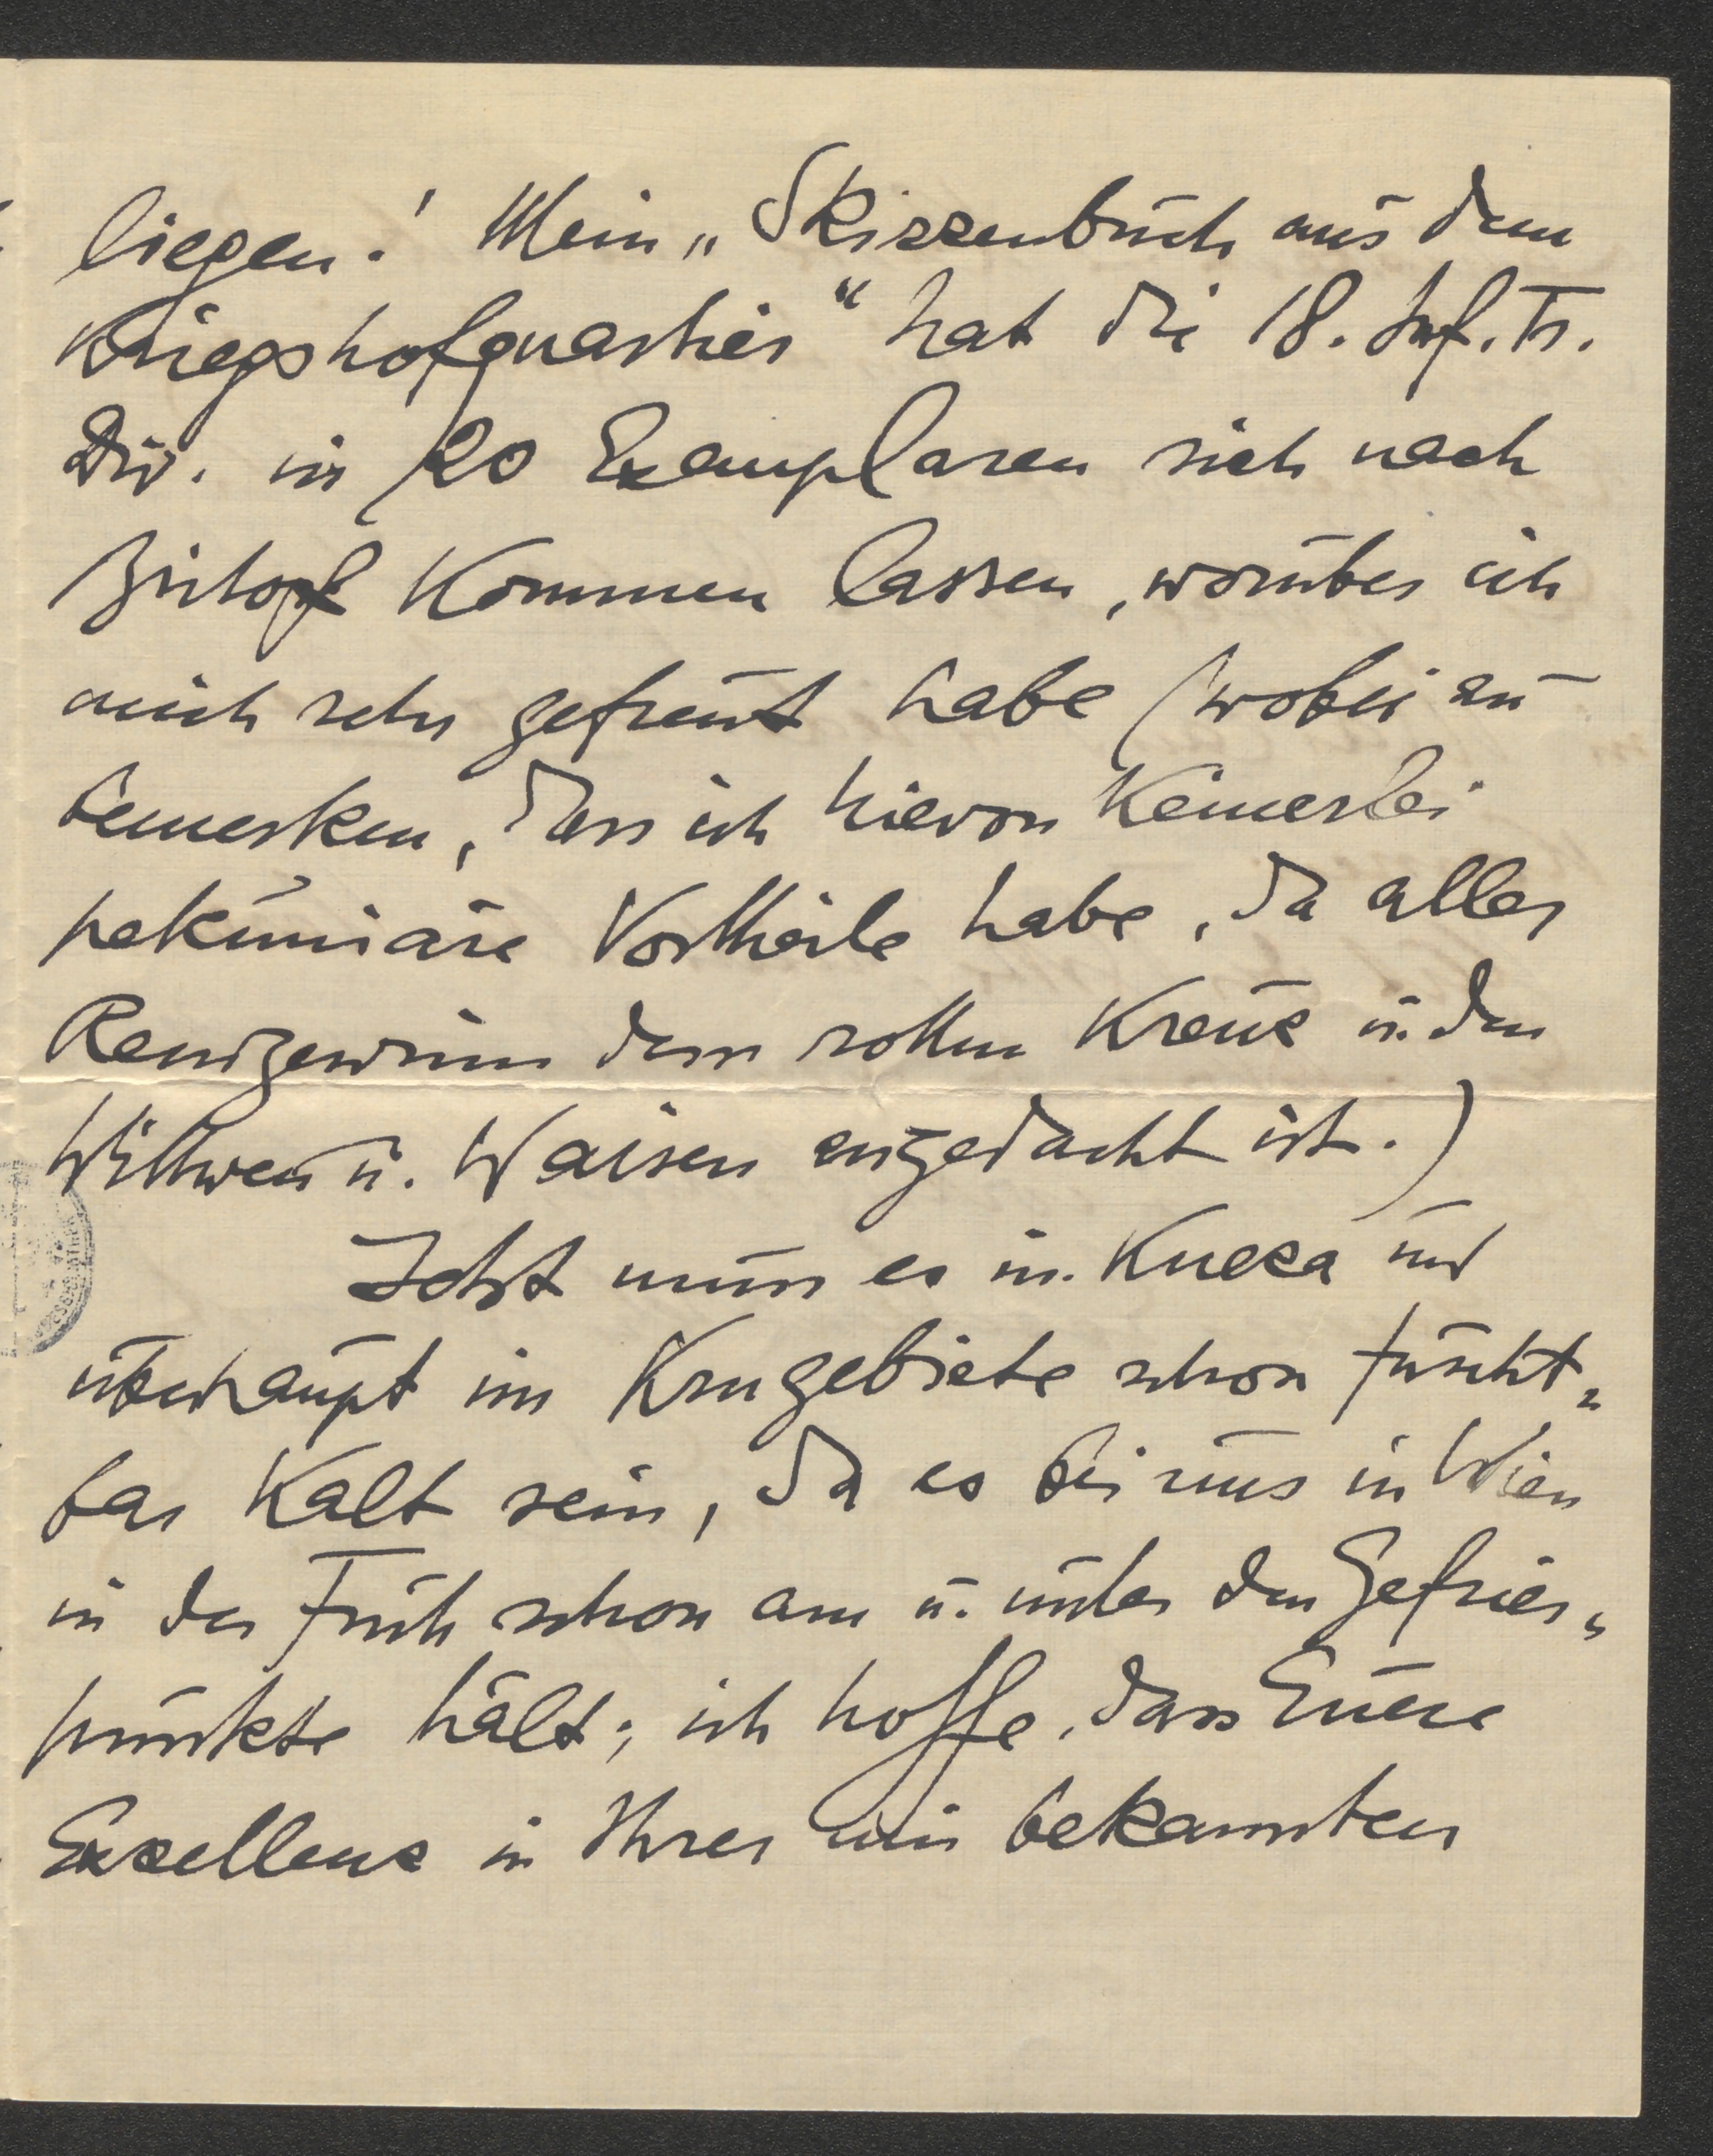 liegen! Mein „Skizzenbuch aus dem
Kriegshofquartier“ hat die 18. Inf. Tr.
Div. in 20 Exemplaren sich nach
kommen lassen, worüber ich
mich sehr gefreut habe (wobei zu
bemerken, dass ich hievon keinerlei
pekuniäre Vortheile habe, da aller
Reingewinn dem rothen Kreuz u. den
Wittwen u. Waisen zugedacht ist.)
Jetzt muss es in und
überhaupt im Krngebiete schon furcht„
bar kalt sein, da es bei uns in Wien
in der Früh schon am u. unter dem Gefrier„
punkte hält; ich hoffe, dass Euere
Exzellenz in Ihrer mir bekannten